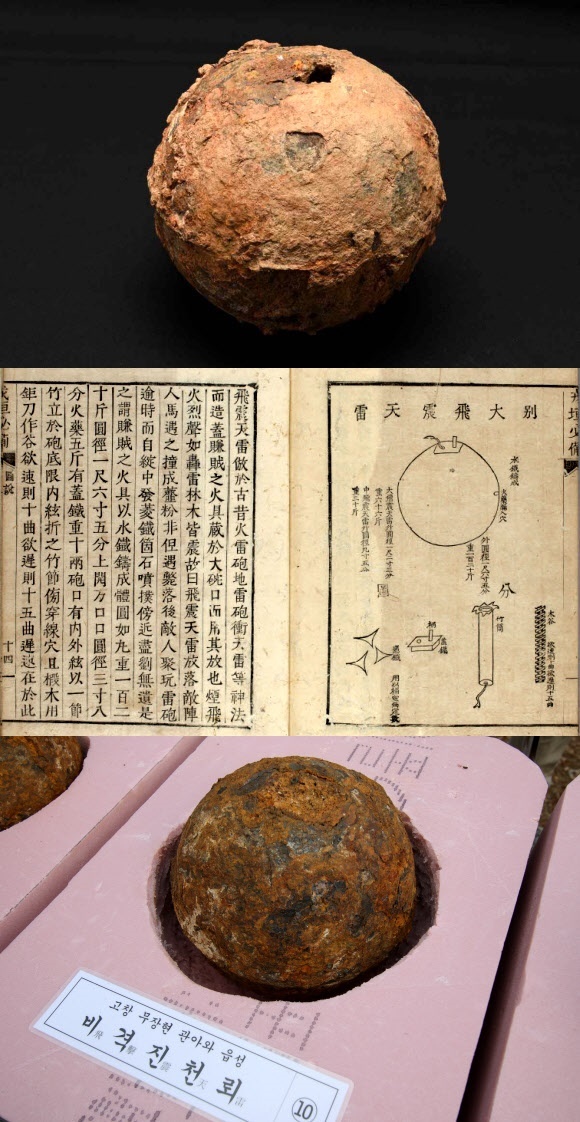 別大飛震天雷
水鐵鑄成
外圓徑一尺六寸五分
重一百二十斤
重六十六斤
重三十斤
木谷
欲速則十曲欲遲則十五曲
竹筒
柄
蓋鐵
菱鐵
飛震天雷倣於古昔火雷砲地雷砲衝天雷等神法
而造蓋賺賊之火具藏於大碗口而其放也煙飛
火烈聲如轟雷林木皆震故曰飛震天雷放落敵陣
人馬遇之撞成虀粉非但遇斃落後敵人聚玩雷砲
逾時而自綻中發菱鐵箇石噴撲傍近盡劉無遺是
之謂賺賊之火具以水鐵鑄成體圓如九重一百二
十斤圓徑一尺六寸五分上開方口口圓徑三寸八
分火藥五斤有蓋鐵重十兩砲口有內外絃以一節
竹立於砲底限內絃折之竹節傍穿線穴且椴木用
鉅刀作谷欲速則十曲欲遲則十五曲遲速在於此
圖說
十四
고창 무장현 관아와 읍성
비격진천뢰
飛擊震天雷
⑩